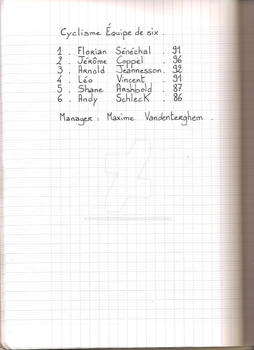 Cyclisme Équipe de six.
1. Florian Sénéchal. 91
2. Jérôme Coppel. 96
3. Arnold Jeannesson. 92
4. Léo Vincent. 91
5. Shane Archbold. 87
6. Andy Schleck. 86
Manager: Maxime Vandenterghem.